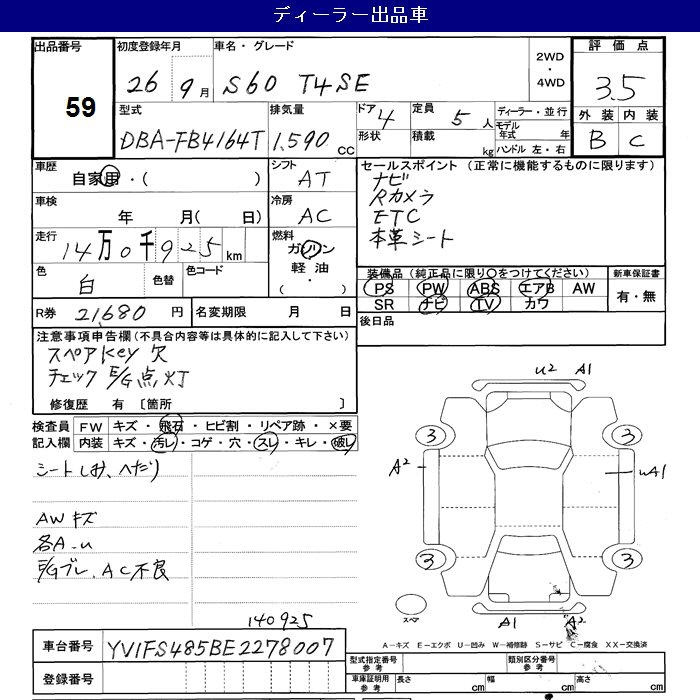 ディーラー出品車
出品番号 初度登録年月 車名・グレード 2WD・4WD 評価点
59 26 9月 S60 T4SE 3.5
型式 排気量 ドア 4 定員 5人 ディーラー・並行 外装 内装
DBA-FB4164T 1,590cc 形状 積載 kg モデル年式 年 ハンドル 左・右 B C
車歴 自家用・( ) シフト AT セールスポイント (正常に機能するものに限ります)
ナビ
車検 年 月( 日) 冷房 AC Rカメラ
ETC
走行 14万0千925km 燃料 ガソリン 軽油・( ) 本革シート
色 白 色替 色コード 装備品(純正品に限り○をつけてください) 新車保証書
PS PW ABS エアB AW 有・無
SR ナビ TV カワ
R券 21,680円 名変期限 月 日 後日品
注意事項申告欄(不具合内容等は具体的に記入して下さい)
スペアKey欠
チェックE/G点灯
修復歴 有 [箇所 ]
検査員 FW キズ・飛石・ヒビ割・リペア跡・×要
記入欄 内装 キズ・汚レ・コゲ・穴・スレ・キレ・破レ
シートしわ、へたり
AWキズ
各A-u
E/Gブレ、AC不良
u2 A1
3 3
A2 uA1
3 3
スペア A1 A2
140925
車台番号 YV1FS485BE2278007
A-キズ E-エクボ U-凹み W-補修跡 S-サビ C-腐食 XX-交換済
登録番号
型式指定番号 参考 類別区分番号 参考
車庫証明用 参考 長さ cm 幅 cm 高さ cm